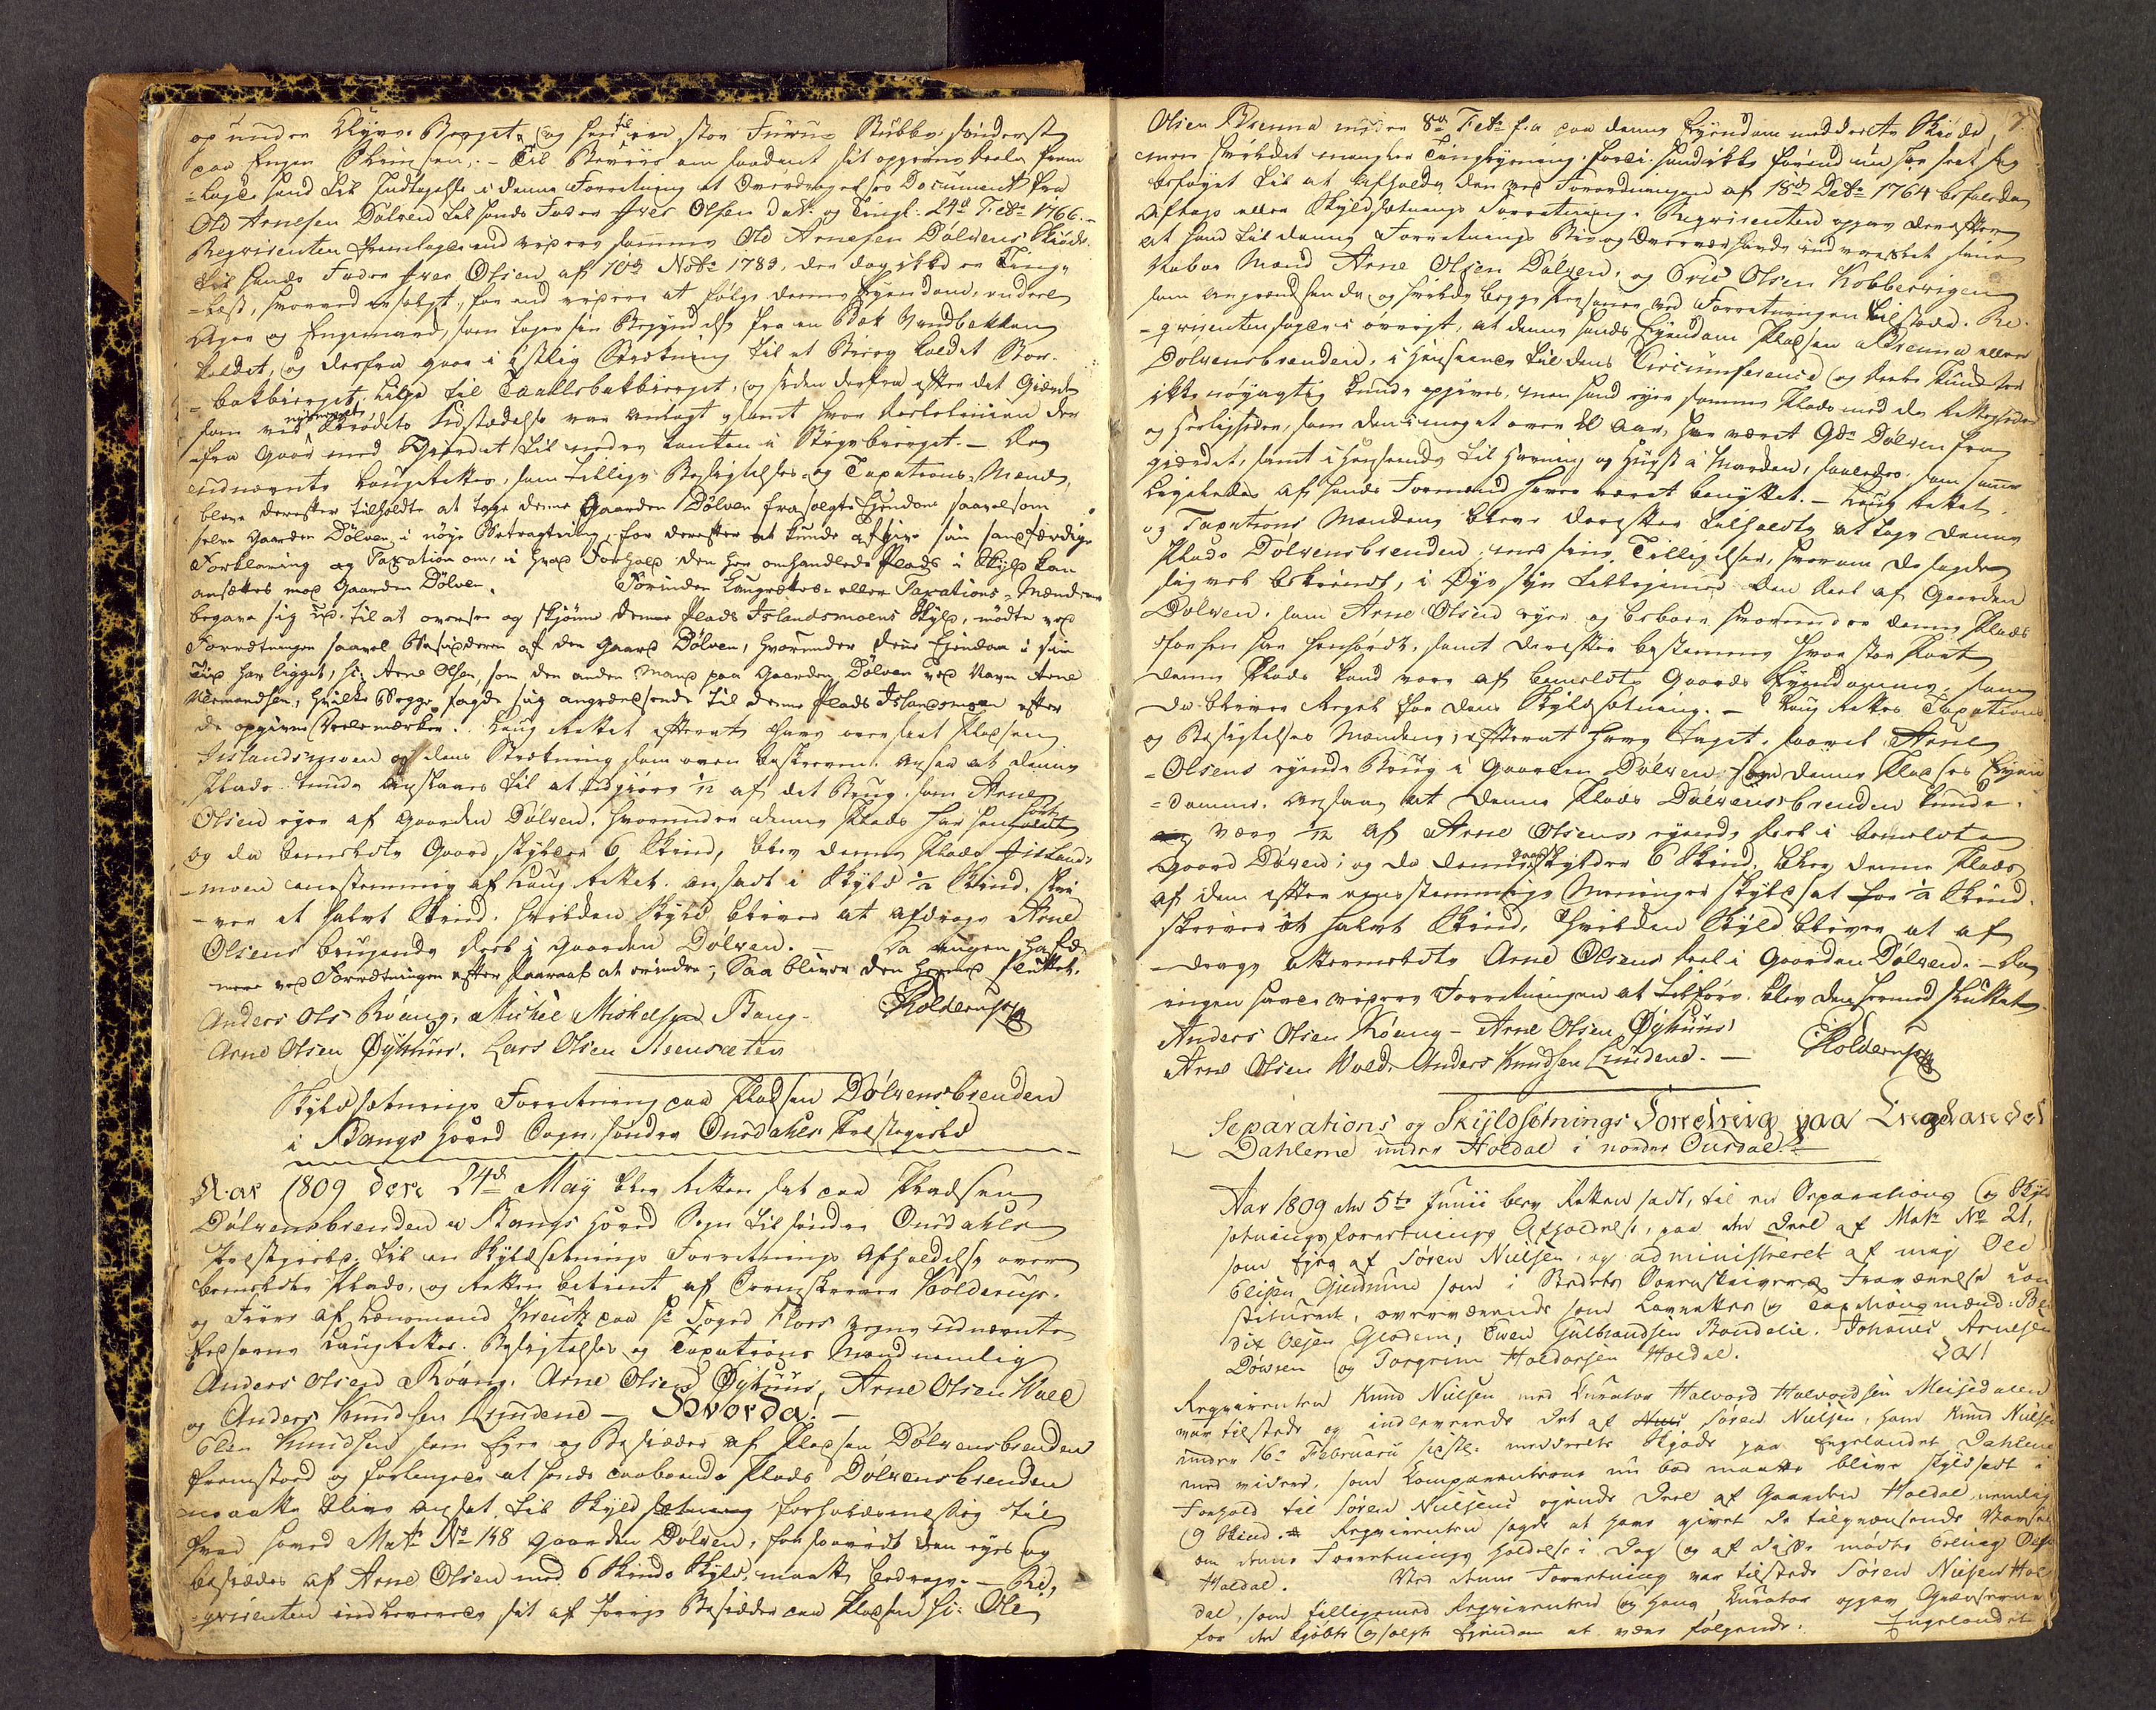 op under Klyve Berget, og hen til een stor Furue Stubbe sønderst
paa Engen Skrinsen. – Til Beviis om saadant sit opgivne deele frem
=lagde hand til Indtagelse i denne Forretning et Overdragelses Document fra
Old Arnesen Dølven til hands Fader Iver Olsen dat. og Tingl. 24d Febr 1766. –
Reqvirenten fremlagde end videre samme Old Arnesen Dølvens Skiøde
til hands Fader Iver Olsen af 10d Novbr 1783. den dag ikke er Ting-
=læst, hvorved er solgt, for end videre at følge denne Eyendom, endeel
Ager og Engemark, som tager sin Begyndelse fra en Bæk Vandbækken
kaldet, og derfra gaar i østlig Strækning til et Bierg kaldet Stor-
=bakbierget, ligse til Taallsbakbierget, og siden derfra efter det Gierde
som ved nysnævnte Skiødets Udstædelse var anlagt, samt hvor deelelinien der
=fra gaar med Gierdet til nedre kanten i Stygebierget. – De
udnævnte Laugrettes, som tillige Besigtelses- og Taxations-Mænd,
bleve derefter tilholdte at tage denne Gaarden Dølven frasolgte Eyendom saavelsom
selve Gaarden Dølven, i nøye Betragtning, for derefter at kunde afgive sin samvittige
Forklaring og Taxation om, i hvad Forhold den her omhandlede Plads i Skyld kan
ansættes mod Gaarden Dølven. Forinden Laugrettes- eller Taxations-Mændene
begave sig ud til at overse og skiønne denne Plads Islandsmoens Skyld, mødte ved
Forretningen saavel Besidderen af den Gaard Dølven, hvorunder denne Eyendom i sin
Tiid har ligget, hr. Arne Olsen, som den anden Mand paa Gaarden Dølven ved Navn Arne
Aamundsen, hvilke Begge sagde sig angrændsende til denne Plads Islandsmoen efter
de opgivne Deelemærker. Laug Rettet efterat have overseet Pladsen
Islandsmoen og dens Strækning som oven beskreven, ansaa at denne
Plads kunde anslaaes til at udgiøre 1/12 af det Brug, som Arne
Olsen eyer af Gaarden Dølven, hvorunder denne Plads har henhørt
og da bemeldte Gaard skylder 6 Skind, blev denne Plads Island-
=moen eenstemmig af Laug Rettet ansadt i Skyld ½ Skind, skri-
=ver et halvt Skind, hvilken Skyld bliver at afdrage Arne
Olsens brugende deel i Gaarden Dølven. – Da ingen hafde
mere ved Forretningen efter Paaraab at erindre; Saa bliver den hermed sluttet.
Anders Ols: Røang. Michel Michelsen Bang. Kolderup
Arne Olsen Øyhuus. Lars Olsen Steensæter
Skyldsætnings Forretning paa Pladsen Dølvensbrenden
i Bangs hoved Sogn, søndre Ourdahls Præstegield
Aar 1809 den 24d May blev Retten sat paa Pladsen
Dølvensbrenden i Bangs hoved Sogn til søndre Ourdahls
Præstegield, til en Skyldsætnings Forretnings Afholdelse over
bemeldte Plads, og Retten betient af Sorenskriver Kolderup,
og Tiener af Lensmand Kreutz paa Hr. Foged Floers vegne udnævnte
Pladsens Laugrettes- Besigtelses og Taxations Mænd nemlig
Anders Olsen Røang. Arne Olsen Øyhuus, Arne Olsen Wold
og Anders Knudsen Lundene – Hvorda! –
Elling Knudsen som Eyer og Besidder af Pladsen Dølvensbrenden
fremstoed og forlangede at hands eaaboende Plads Dølvensbrenden
maatte blive ansat til Skyldsætning forholdsmessig til
hvad hoved Matr No 148 Gaarden Dølven, forsaavidt den eyes og
besiddes af Arne Olsen med 6 Skinds Skyld, maatte bedrage. – Re-
=qvirenten indleverede sit af forrige Besidder paa Pladsen hr. Ole
7.
Olsen Brenna under 8d Febr f.a. paa denne Eyendom meddeelte Skiøde,
men hvilket mangler Tinglysning, fordi hand ikke førend nu har seet sig
beføyet til at afholde den ved Forordningen af 18d Decbr 1764 befalede
Aftægt eller Skyldsætnings Forretning. Reqvirenten opgav derefter
at hand til denne Forretnings Biv og Overvær havde indvarslet sine
Naboe Mænd Arne Olsen Dølven, og Orie Olsen Kobbervigen
som angrændsende, og hvilke begge personer ved Forretningen tilstæde. Re-
=qvirenten sagde i øvrigt, at denne hands Eyendom Pladsen Brenna eller
Dølvensbrenden, i henseende til dens Circumference og deele kunde her
ikke nøyagtig kunde opgives, men hand eyer samme Plads med de Rettigheder
og herligheder, som den i meget over 20 Aar, har været Gds Dølven fra
giærdet, samt i henseende til havning og Hugst i Marken, saaledes som samme
ligeledes af hands Formænd have været benyttet. – Laug Rettet
og Taxations Mændene bleve derefter tilholdte at tage denne
Plads Dølvensbrenden med sine Tilligelser, hvorom de sagde
sig vel bekiendt, i Øyesyn tilligemed den deel af Gaarden
Dølven, som Arne Olsen eyer og beboer, hvorunder denne Plads
forhen har henhørdt, samt derefter bestemme hvor stor Part
denne Plads kand være af bemeldte Gaards Eyendomme, som
da bliver Regel for dens Skyldsætning. – Laug Rettes Taxations
og Besigtelses Mændene, efterat have taget saavel Arne
=Olsens eyende Brug i Gaarden Dølven, som denne Pladses Eyen-
=domme, ansaae at denne Plads Dølvensbrenden kunde
være 1/12 af Arne Olsens eyende deel i bemeldte
Gaard Dølven; og da denne Gaard skylder 6 Skind, blev denne Plads
af dem efter eenstemmige Meninger skyldsat for ½ Skind
skriver et halvt Skind, hvilken Skyld bliver at af
=drage ottermeldte Arne Olsens deel i Gaarden Dølven. – Da
ingen havde videre Forretningen at tilføre blev den hermed sluttet.
Anders Olsen Røang – Arne Olsen Øyhuus
Arne Olsen Wold, Anders Knudsen Lundene. – Kolderup
Separations og Skyldsætnings Forretning paa Englandet
Dahlerne under Holdal i nordre Ourdal.
Aar 1809 den 5te Junii blev Retten sadt, til en Separations og Skyld
sætnings forretnings Afholdelse, paa den Deel af Matr No 21,
som Eyes af Søren Nielsen, og administreret af mig Ole
Elisen Gudmine som i Stedets Sorenskrivers Fraværelse con
stitueret, overværende som Laurettes og Taxations mænd: Ben
dix Olsen Glodem, Even Gulbrandsen Bandelie. Johanes Arnesen
Døvren og Torgrim Haldorsen Holdal. Da!
Reqvirenten Knud Nielsen med Curator Halvord Halvordsen Meisdalen
var tilstede og indleverede det af Søren Nielsen, ham Knud Nielsen
under 16de Februarii sidstl. meddeelte Skjøde paa Englandet Dahlerne
med videre, som Comparenterne nu bad maatte blive skyldsadt i
Forhold til Søren Nielsens eyende Deel af Gaarden Holdal, nemlig
9 Skind. Reqvirenten sagde at have givet de tilgrænsende Varsel
om denne Forretnings holdelse i Dag og af disse mødte Erling Olsen
Holdal. Ved denne Forretning var tilstede Søren Nielsen Hol
dal, som tilligemed Reqvirenten og hans Curator opgav Grændserne
for den kjøbte og solgte Eyendom at være følgende: Englandet